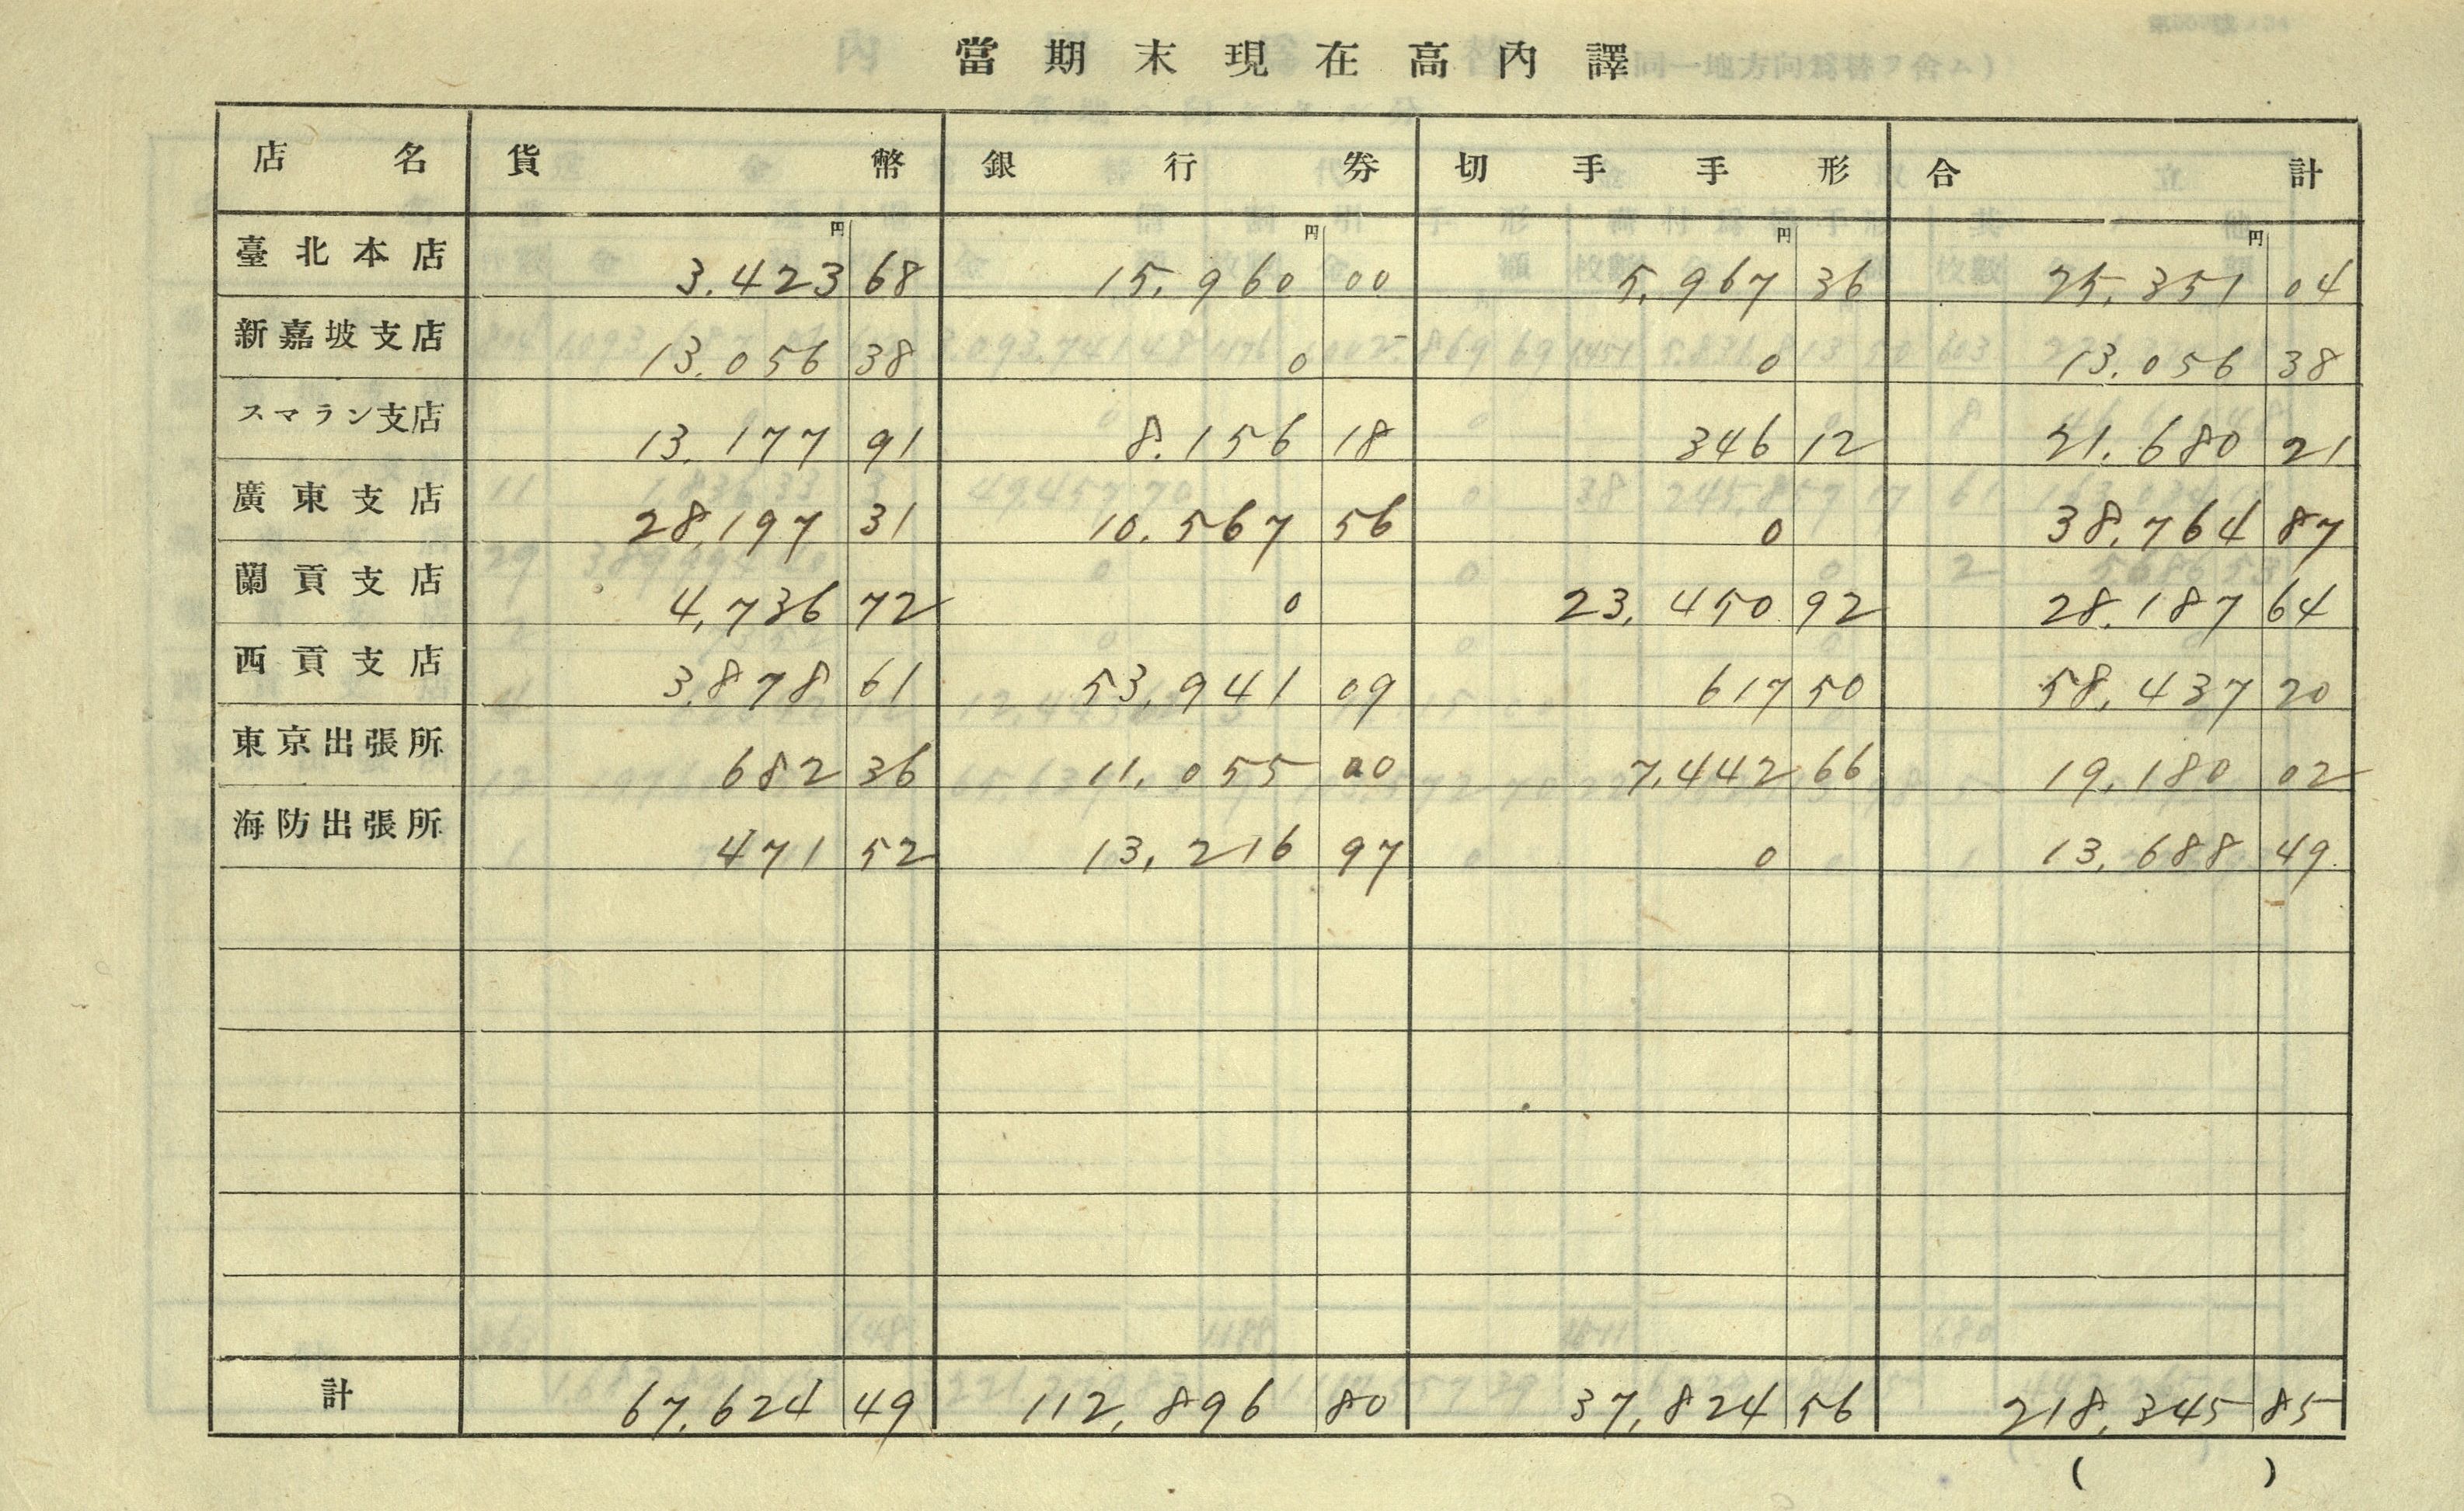 當期末現在高內譯
店名 貨幣 銀行券 切手手形 合計
円 円 円 円
臺北本店 3.423 68 15.960 00 5.967 36 25.351 04
新嘉坡支店 13.056 38 0 0 13.056 38
スマラン支店 13.177 91 8.156 18 346 12 21.680 21
廣東支店 28,197 31 10.567 56 0 38.764 87
蘭貢支店 4,736 72 0 23.450 92 28.187 64
西貢支店 3.878 61 53,941 09 617 50 58,437 20
東京出張所 682 36 11,055 00 7,442 66 19,180 02
海防出張所 471 52 13,216 97 0 13,688 49
計 67,624 49 112,896 80 37,824 56 218,345 85
( )